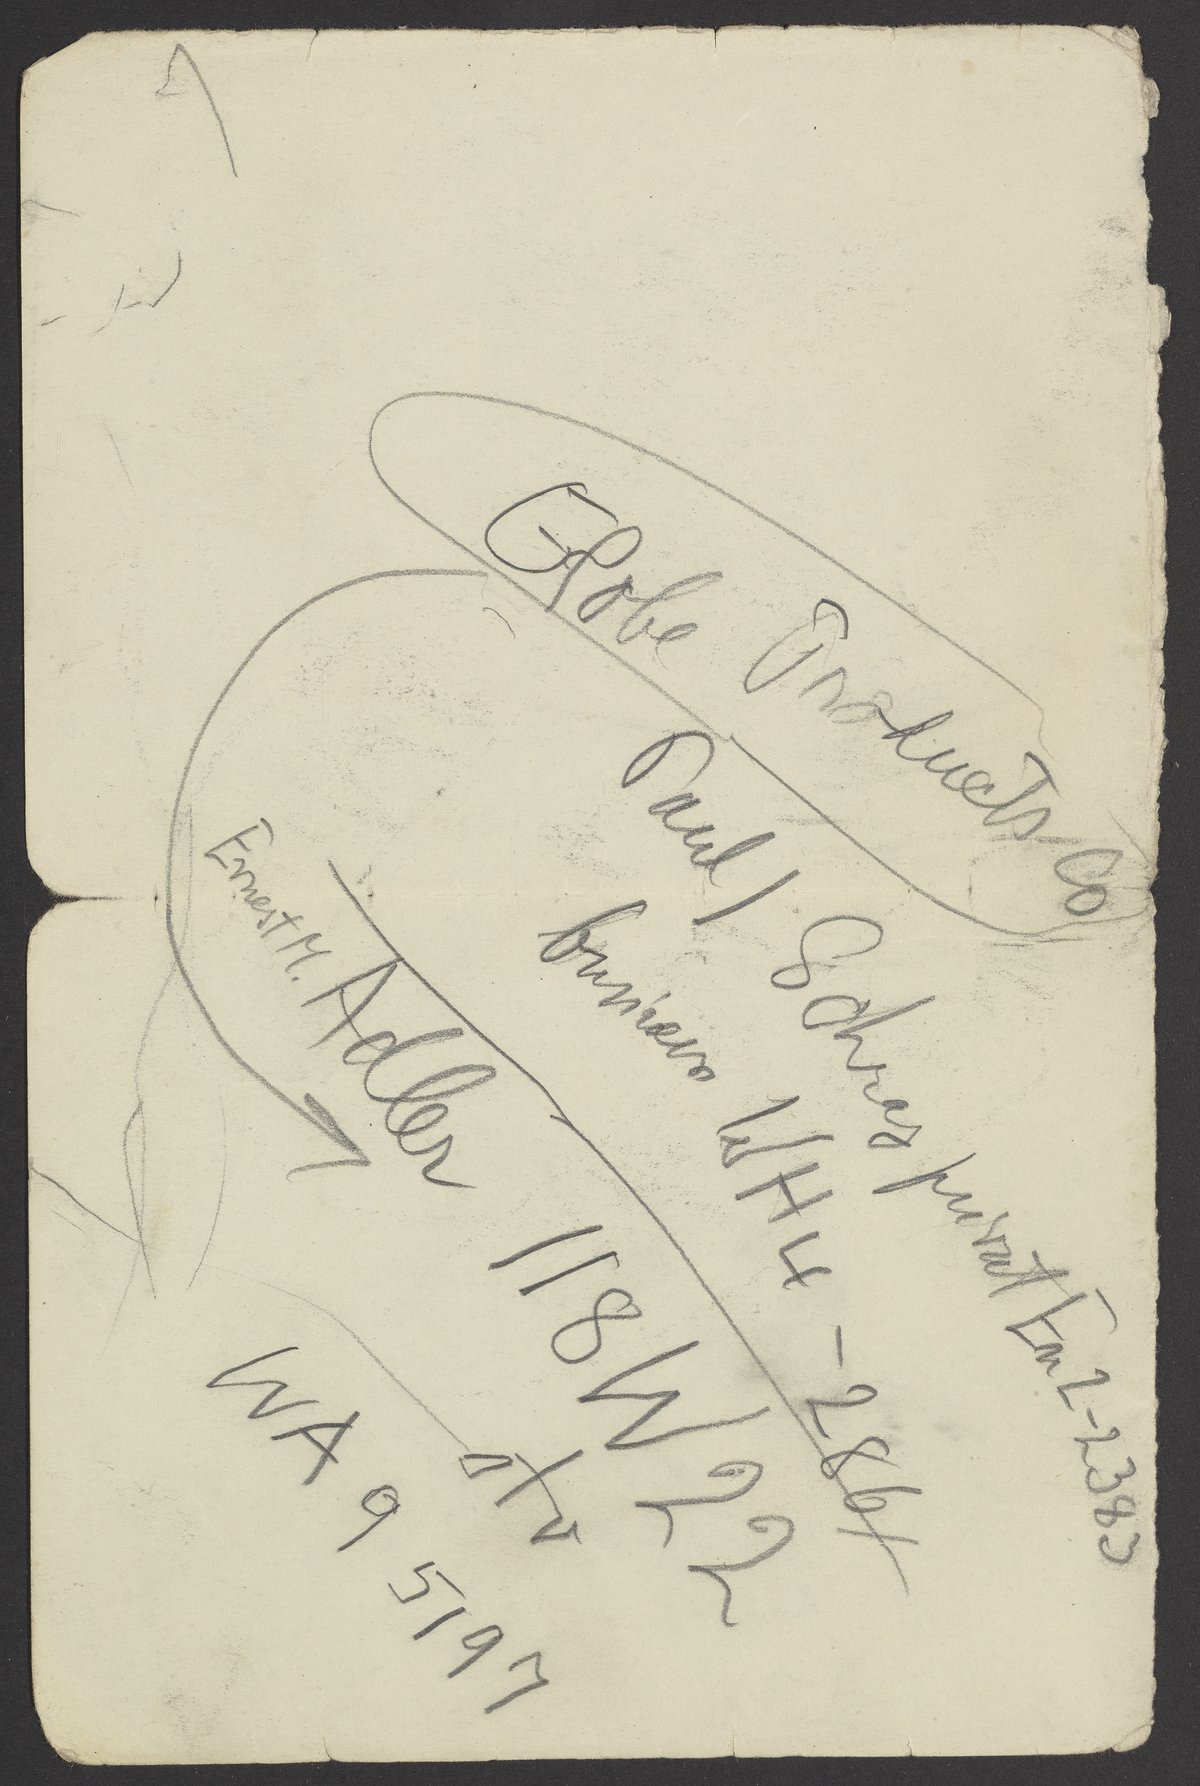 Globe Products Co
Paul Schray privat En 2-2383
business WH 4-2864
Ernest M. Adler 118 W 22
str
WA 9 5197